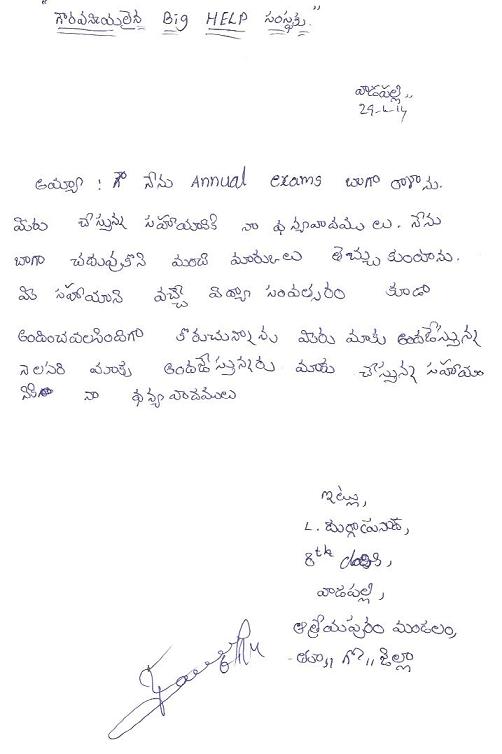 "గౌరవనీయులైన Big HELP సంస్థకు."
వాడపల్లి,,
29-4-14
అయ్యా ! నేను Annual exams బాగా రాశాను.
మీరు చేస్తున్న సహాయానికి నా ధన్యవాదములు. నేను
బాగా చదువుకొని మంచి మార్కులు తెచ్చుకుంటాను.
మీ సహాయాన్ని వచ్చే విద్యా సంవత్సరం కూడా
అందించవలసిందిగా కోరుచున్నాను మీరు మాకు అందజేస్తున్న
నెలసరి మాకు అందజేస్తున్నారు మాకు చేస్తున్న సహాయం
నికి నా ధన్యవాదములు
ఇట్లు,
L. దుర్గాప్రసాద్,
8th class,
వాడపల్లి,
ఆత్రేయపురం మండలం,
తూ,, గో,, జిల్లా